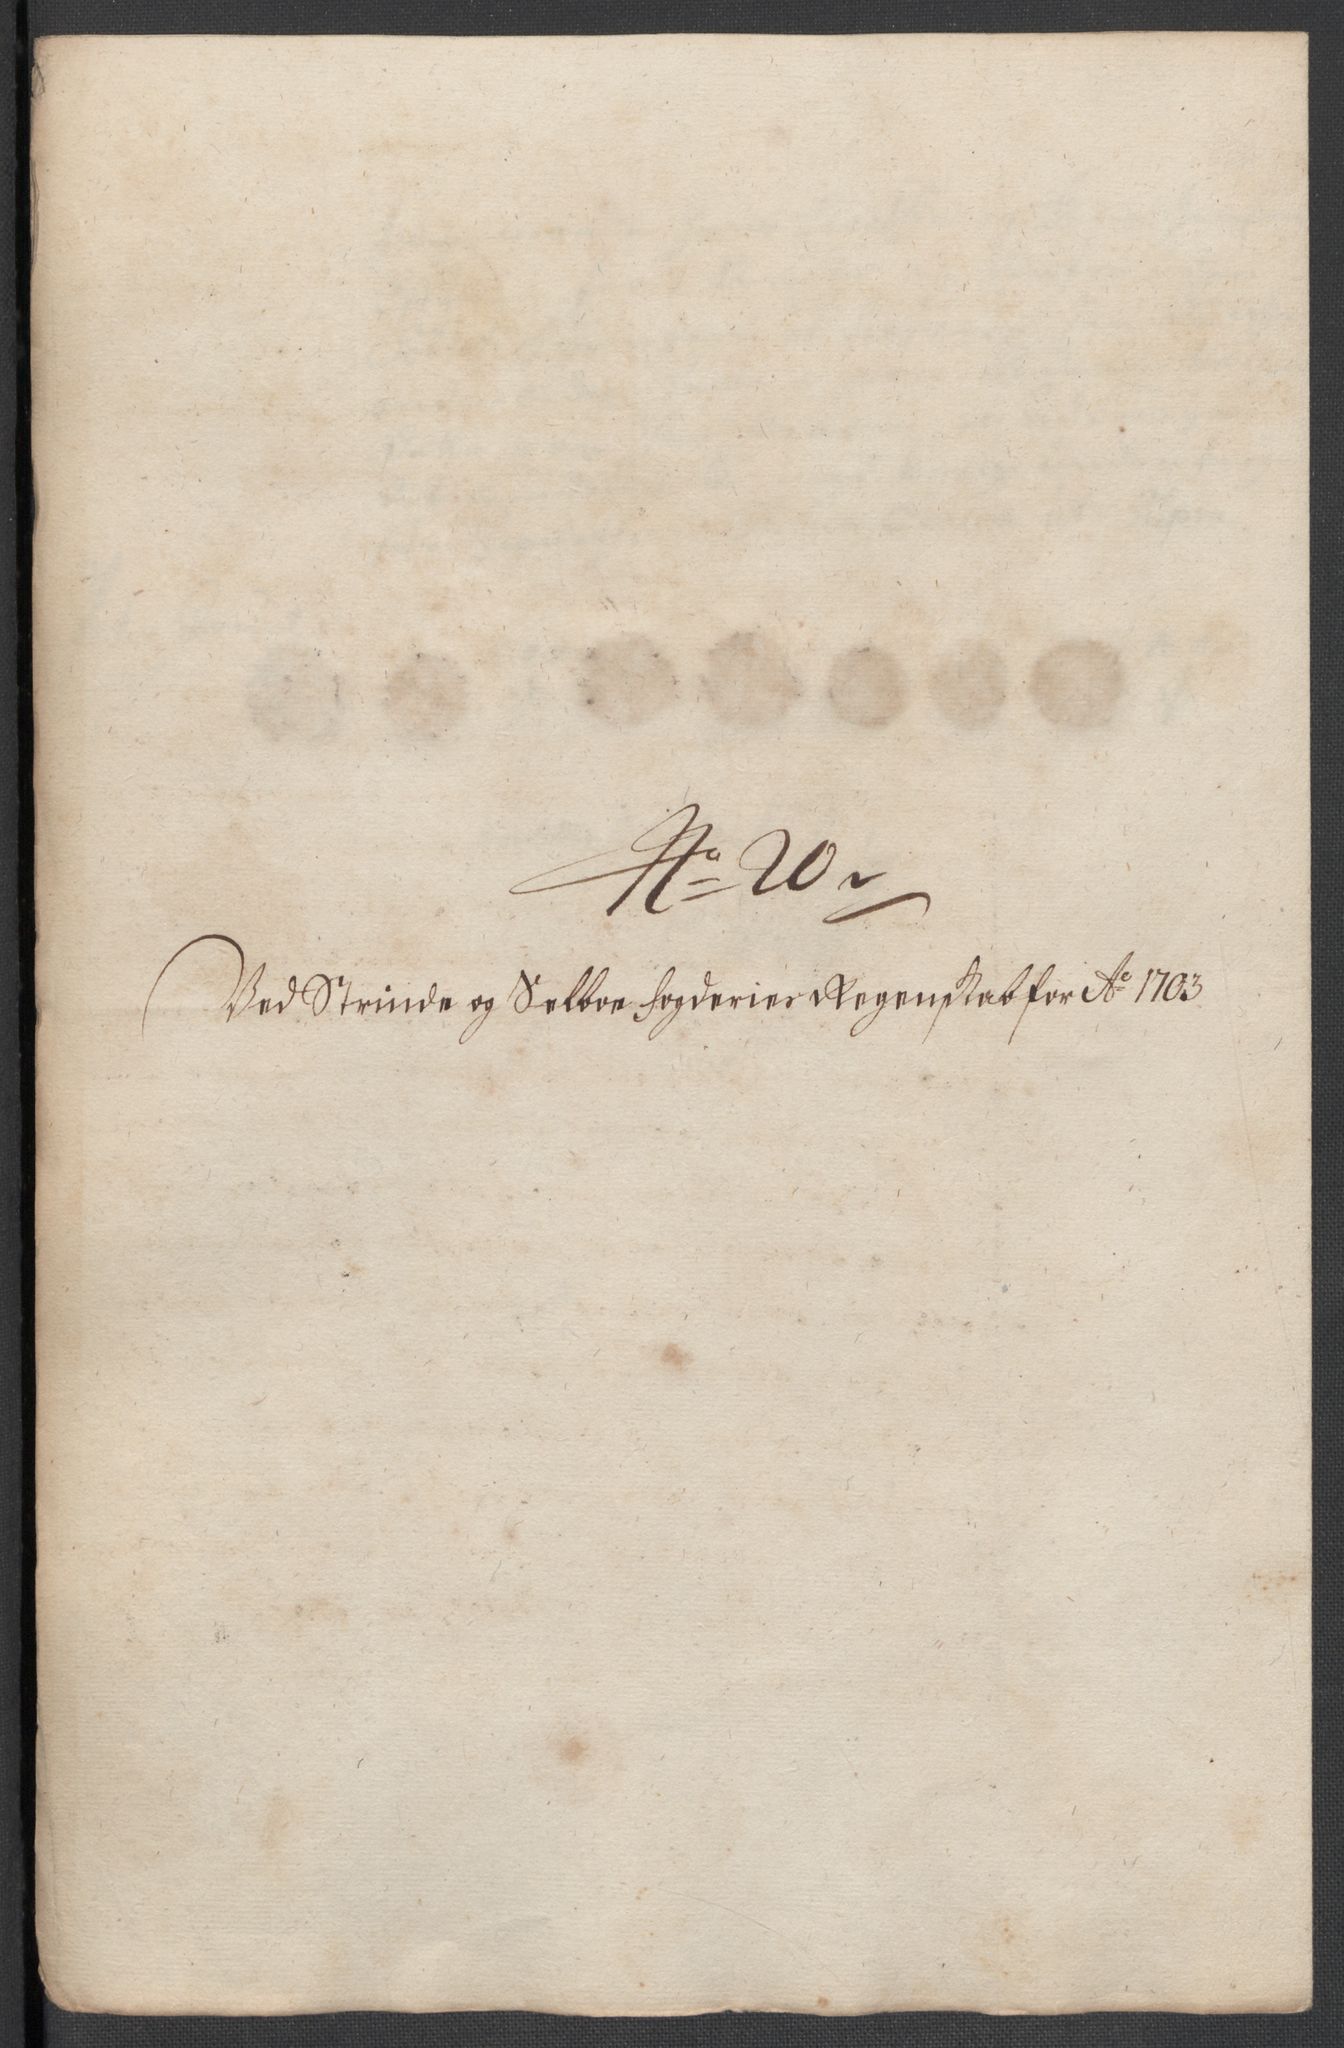 No 20
Ved Strinde og Selboe fogderies Regenskab for Ao 1703